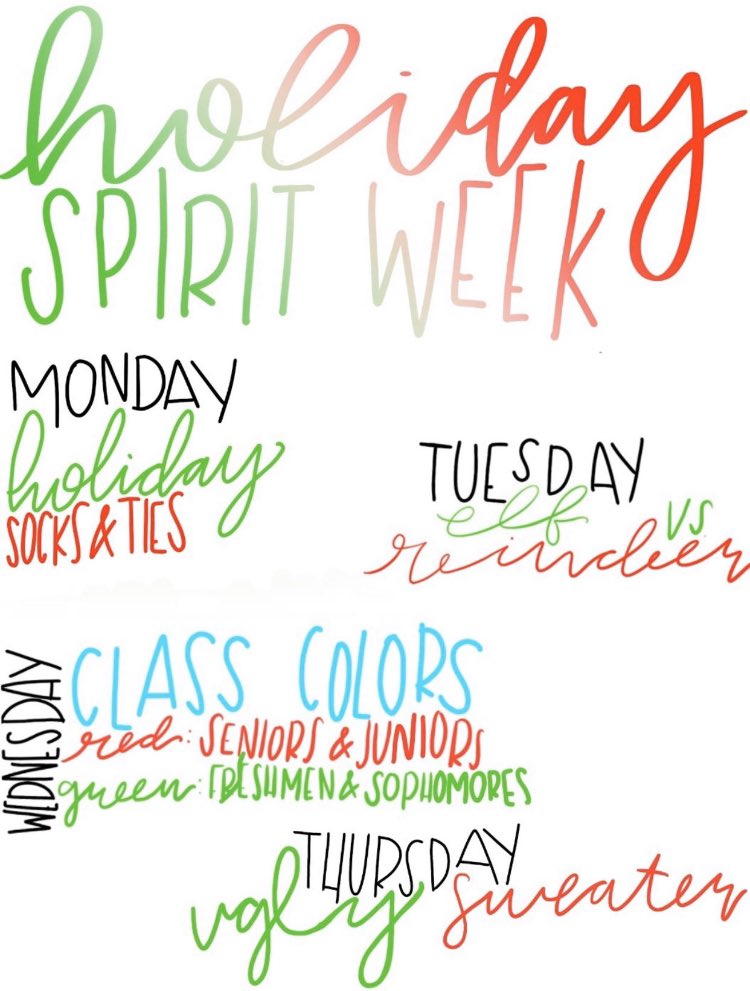 holiday
SPIRIT WEEK
MONDAY
holiday
SOCKS & TIES
TUESDAY
elf vs
reindeer
WEDNESDAY
CLASS COLORS
red: SENIORS & JUNIORS
green: FRESHMEN & SOPHOMORES
THURSDAY
ugly sweater